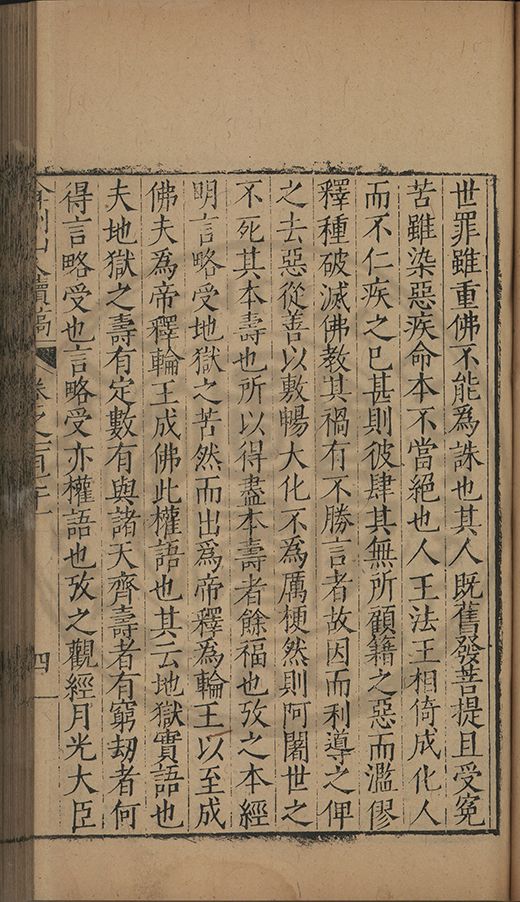 世罪雖重佛不能為誅也其人既舊發菩提且受冤
苦雖染惡疾命本不當絕也人王法王相倚成化人
而不仁疾之已甚則彼肆其無所顧籍之惡而濫僇
釋種破滅佛教其禍有不勝言者故因而利導之俾
之去惡從善以敷暢大化不為厲梗然則阿闍世之
不死其本壽也所以得盡本壽者餘福也攷之本經
明言略受地獄之苦然而出為帝釋為輪王以至成
佛夫為帝釋輪王成佛此權語也其云地獄實語也
夫地獄之壽有定數有與諸天齊壽者有窮劫者何
得言略受也言略受亦權語也攷之觀經月光大臣
山人續稿 卷之一百 四